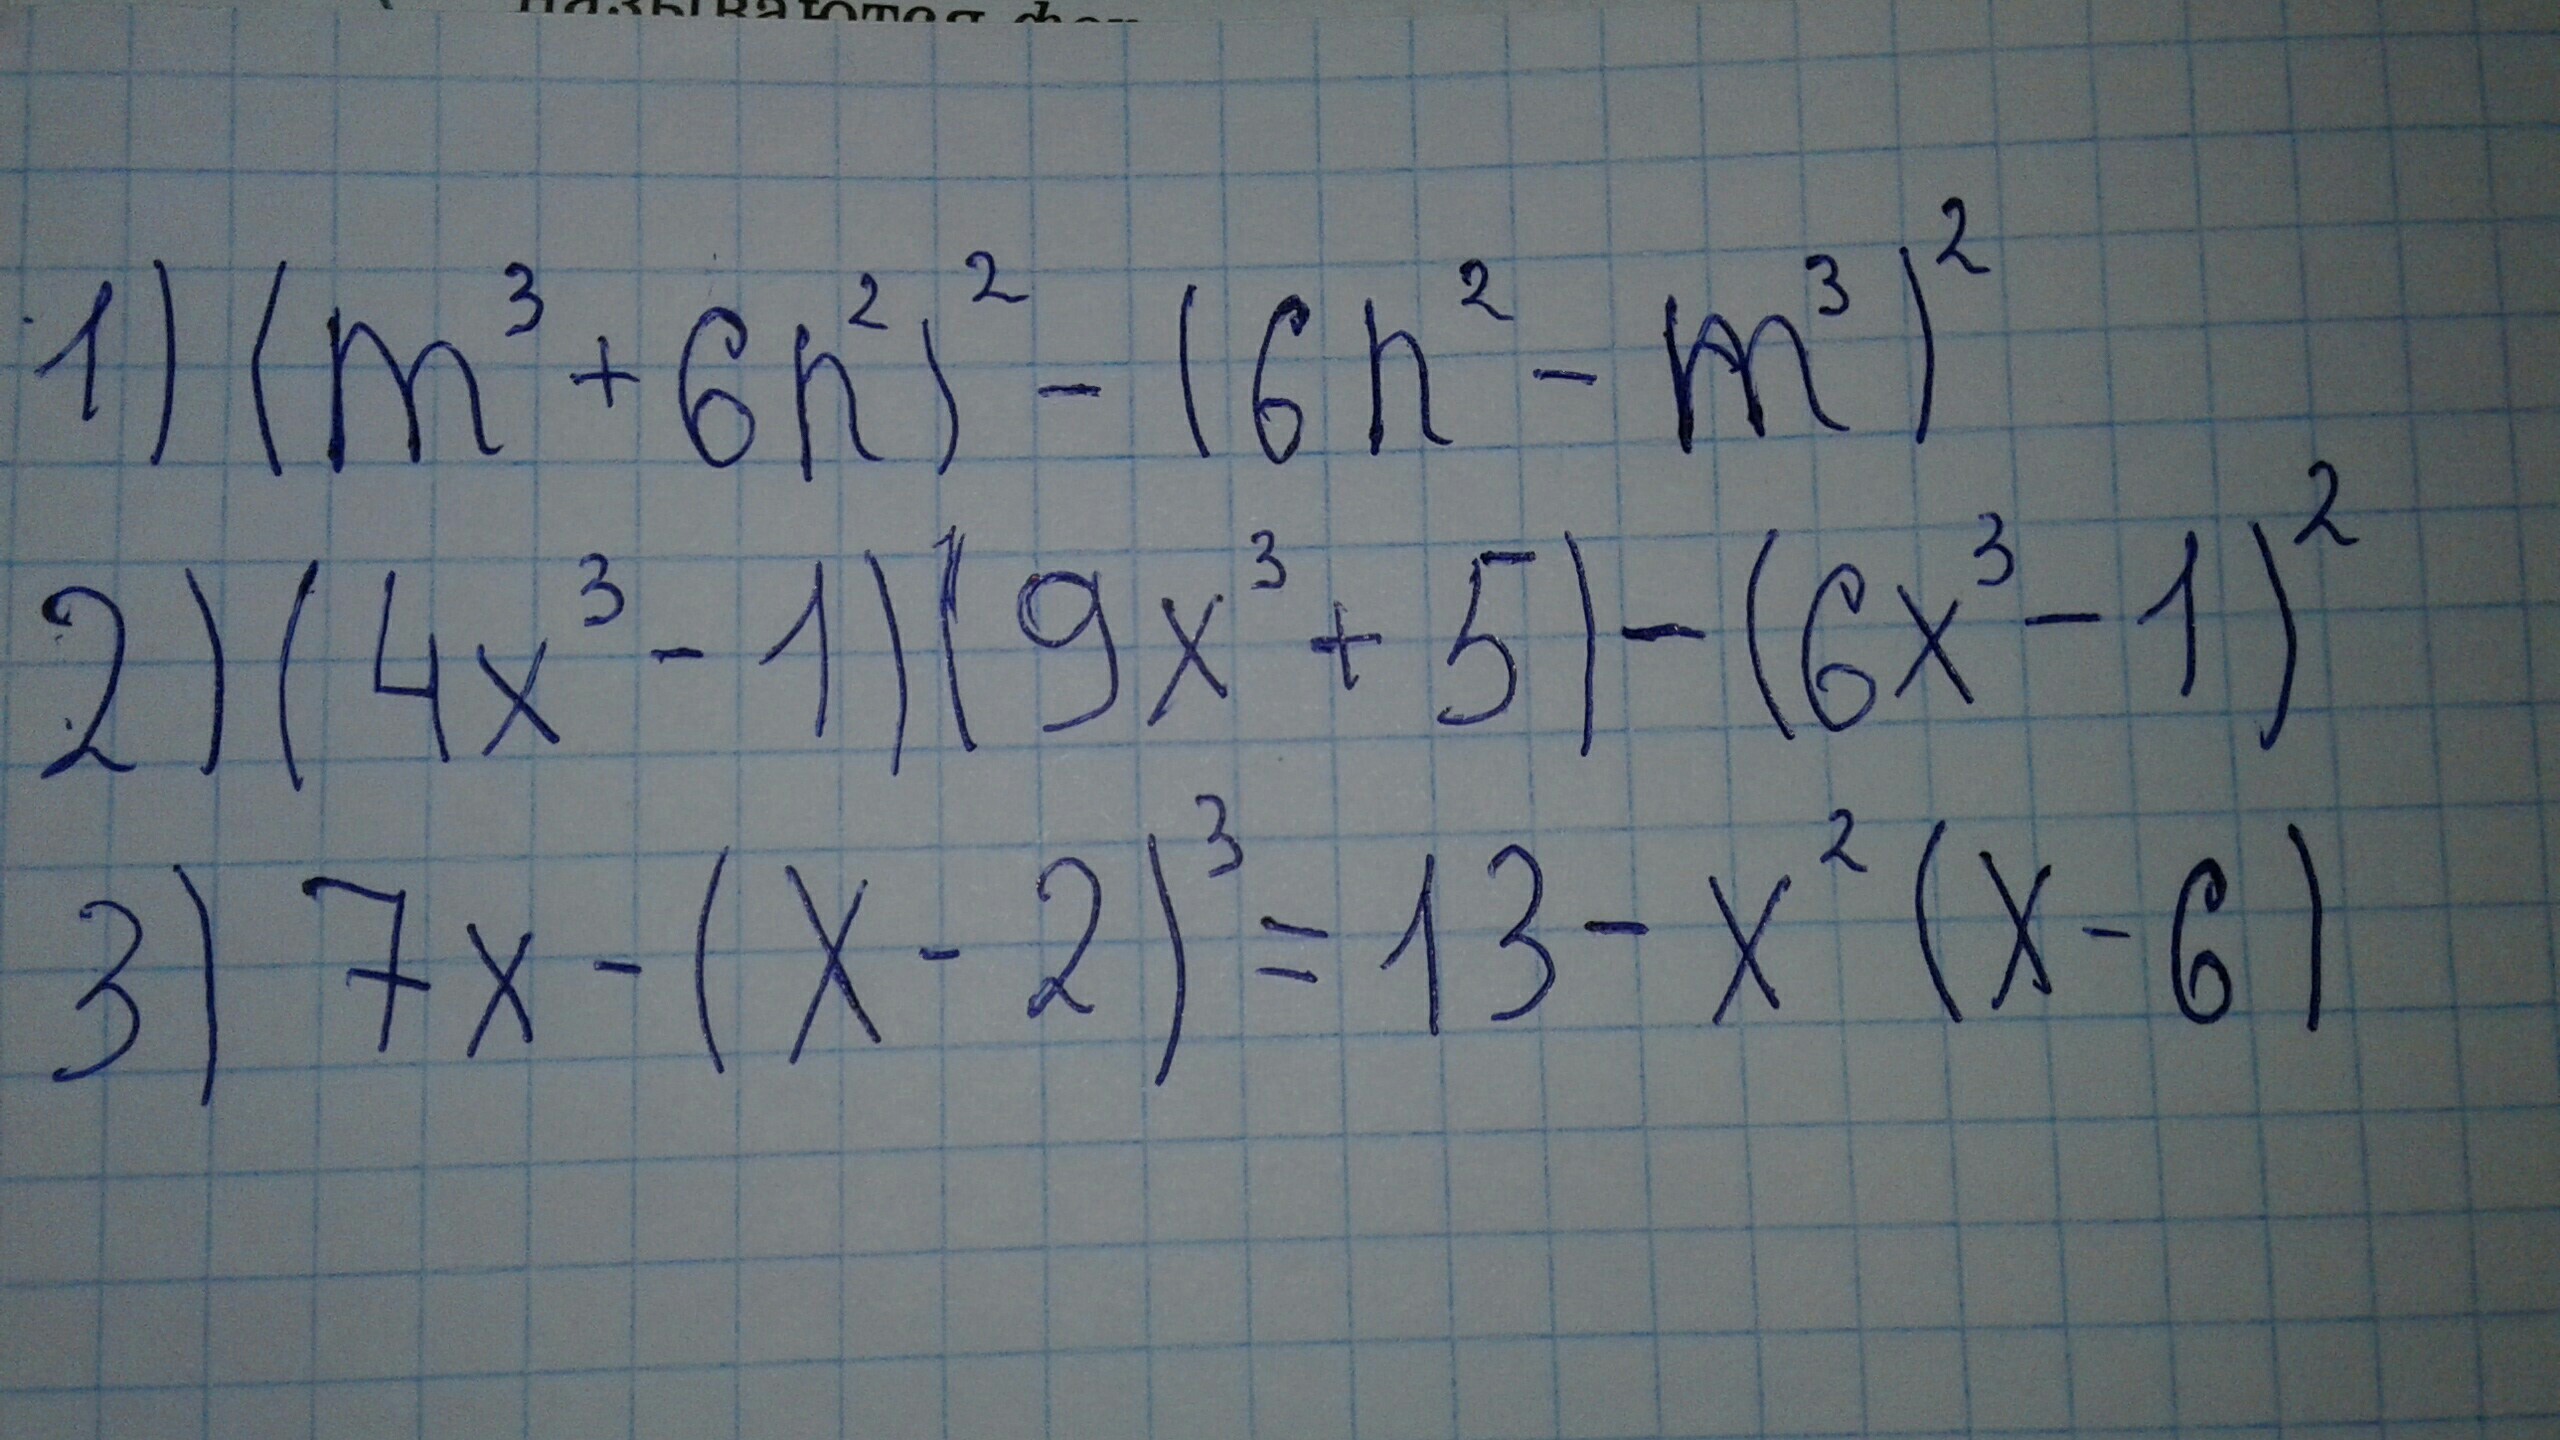 называются фор
1) (m³ + 6n²)² - (6n² - m³)²
2) (4x³ - 1)(9x³ + 5) - (6x³ - 1)²
3) 7x - (x - 2)³ = 13 - x² (x - 6)